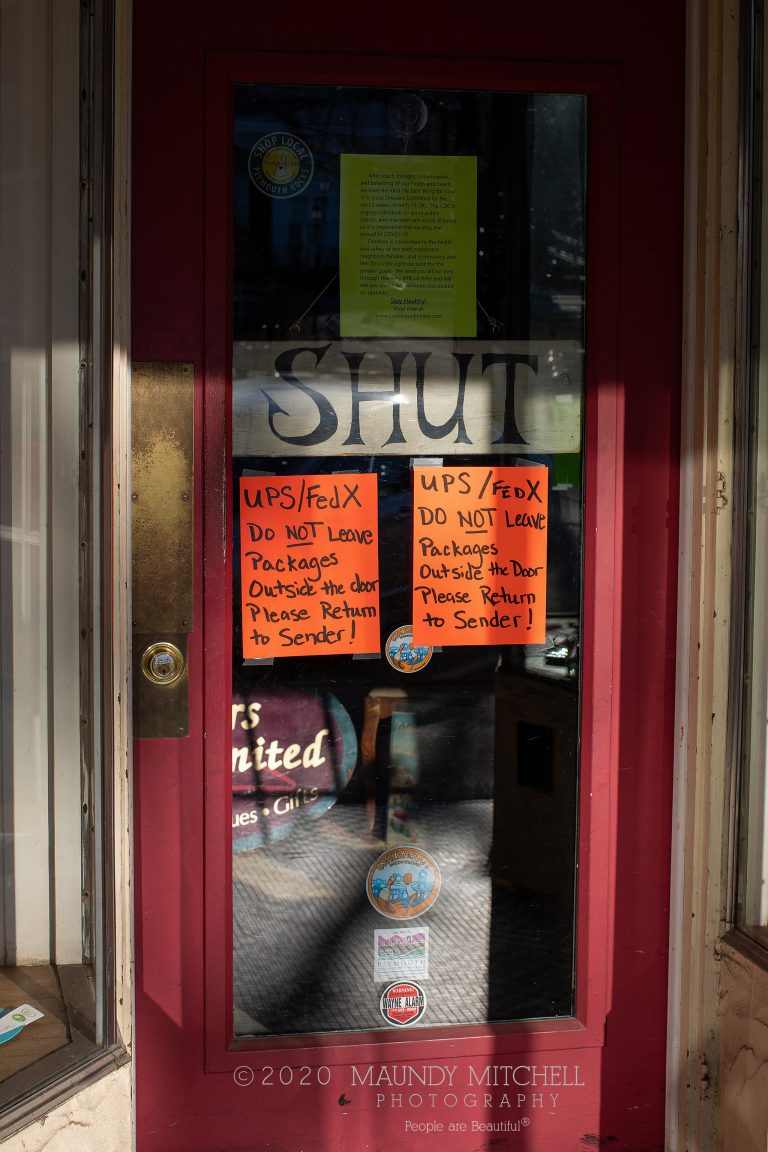 SHOP LOCAL
PLYMOUTH ROCKS
After much thought, conversation,
and balancing of our heads and hearts,
we have decided the best thing for now
is to close Dressers Unlimited for the
next 2 weeks (March 15-29). The CDC is
urging individuals to avoid public
spaces, and maintain safe social distance
as it is imperative that we stop the
spread of COVID-19.
Dressers is committed to the health
and safety of our staff, customers,
neighbors, families, and community, and
feel this is the right decision for the
greater good. We send you all our best
through this very difficult time and will
see you soon! We will keep you posted
on updates.
Stay Healthy!
Shop now at:
www.dressersunlimited.com
SHUT
UPS/FedX
Do NOT Leave
Packages
Outside the door
Please Return
to Sender!
UPS/FEDX
DO NOT Leave
Packages
Outside the Door
Please Return
to Sender!
rs
mited
ues • Gifts
PLYMOUTH
WARNING!
WAYNE ALARM
© 2020 MAUNDY MITCHELL
PHOTOGRAPHY
People are Beautiful®